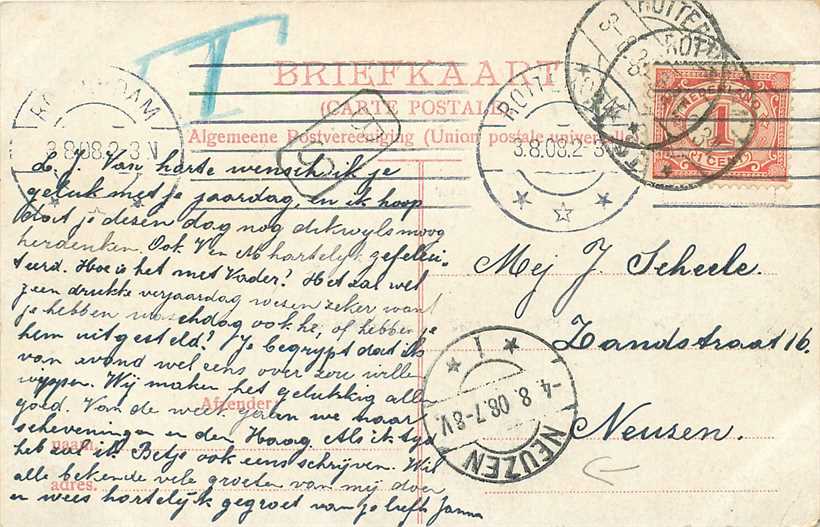 T
BRIEFKAART
(CARTE POSTALE)
Algemeene Postvereeniging (Union postale universelle)
ROTTERDAM
3.8.08.2-3 N
ROTTE
3.8.08.2-3
ROTTE
ROTT
NEDERLAND
1
1 CENT
L. J. Van harte wensch ik je
geluk met je jaardag, en ik hoop
dat je dezen dag nog dikwyls moog
herdenken. Ook V en M hartelyk gefelici-
teerd. Hoe is het met Vader? Het zal wel
zeen drukke verjaardag wezen zeker want
je hebben waschdag ook he, of hebben je
hem uitgesteld? Je begrypt dat ik
van avond wel eens over zou wille
wippen. Wij maken het gelukkig alle
goed. Van de week gaan we naar
scheveningen en den Haag. Als ik tyd
heb zal ik Betje ook eens schrijven. Wil
alle bekende vele groeten van mij doen
en wees hartelyk gegroet van je liefh Janna
Afzender:
naam.
adres.
Mej J. Scheele.
Zandstraat 16.
Neuzen.
1
-4.8.08.7-8V.
NEUZEN